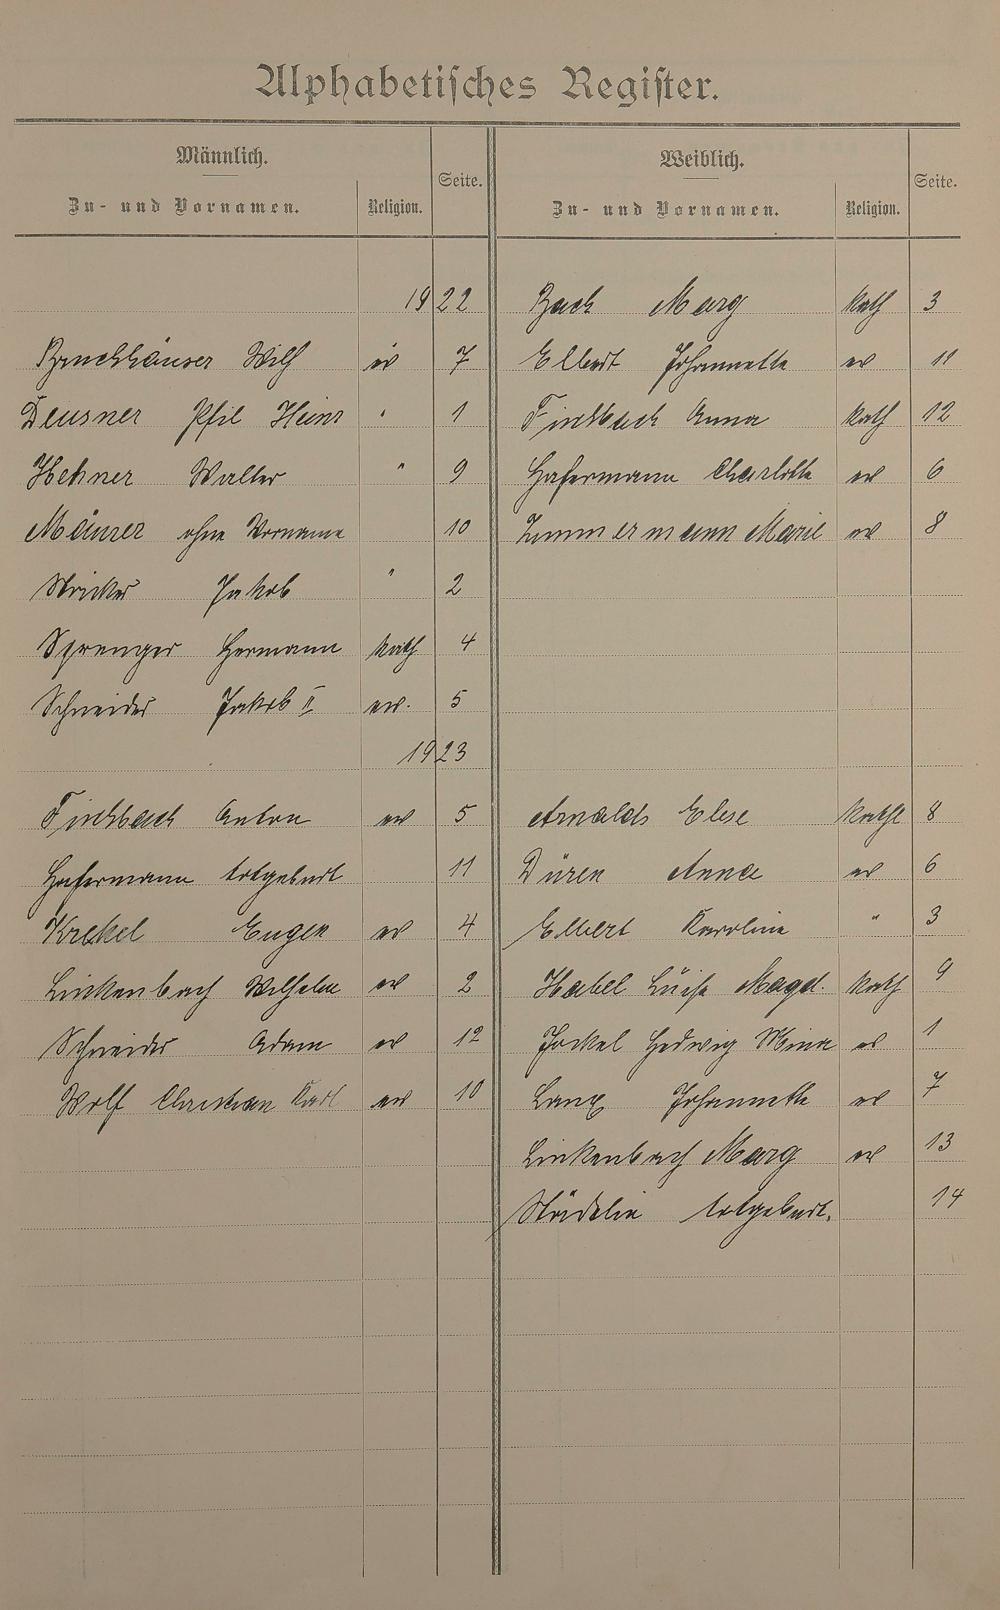 Alphabetisches Register.
Männlich.
Zu- und Vornamen. Religion. Seite.
1922
Bruchhäuser Wilh ev 7
Deusner Phil Heinr " 1
Hehner Walter " 9
Mäurer ohne Vorname 10
Stricker Jakob " 2
Sprenger Hermann kath 4
Schneider Jakob II ev. 5
1923
Fischbach Anton ev 5
Hafermann totgeburt 11
Krekel Eugen ev 4
Linkenbach Wilhelm ev 2
Schneider Adam ev 12
Wolf Christian Karl ev 10
Weiblich.
Zu- und Vornamen. Religion. Seite.
Bach Marg kath 3
Elbert Johannette ev 11
Fischbach Anna kath 12
Hafermann Charlotte ev 6
Zimmermann Marie ev 8
Arnolds Elise kath 8
Düren Anna ev 6
Elbert Karoline " 3
Habel Luise Magd. kath 9
Jockel Hedwig Mina ev 1
Lang Johannette ev 7
Linkenbach Marg ev 13
totgeburt. 14